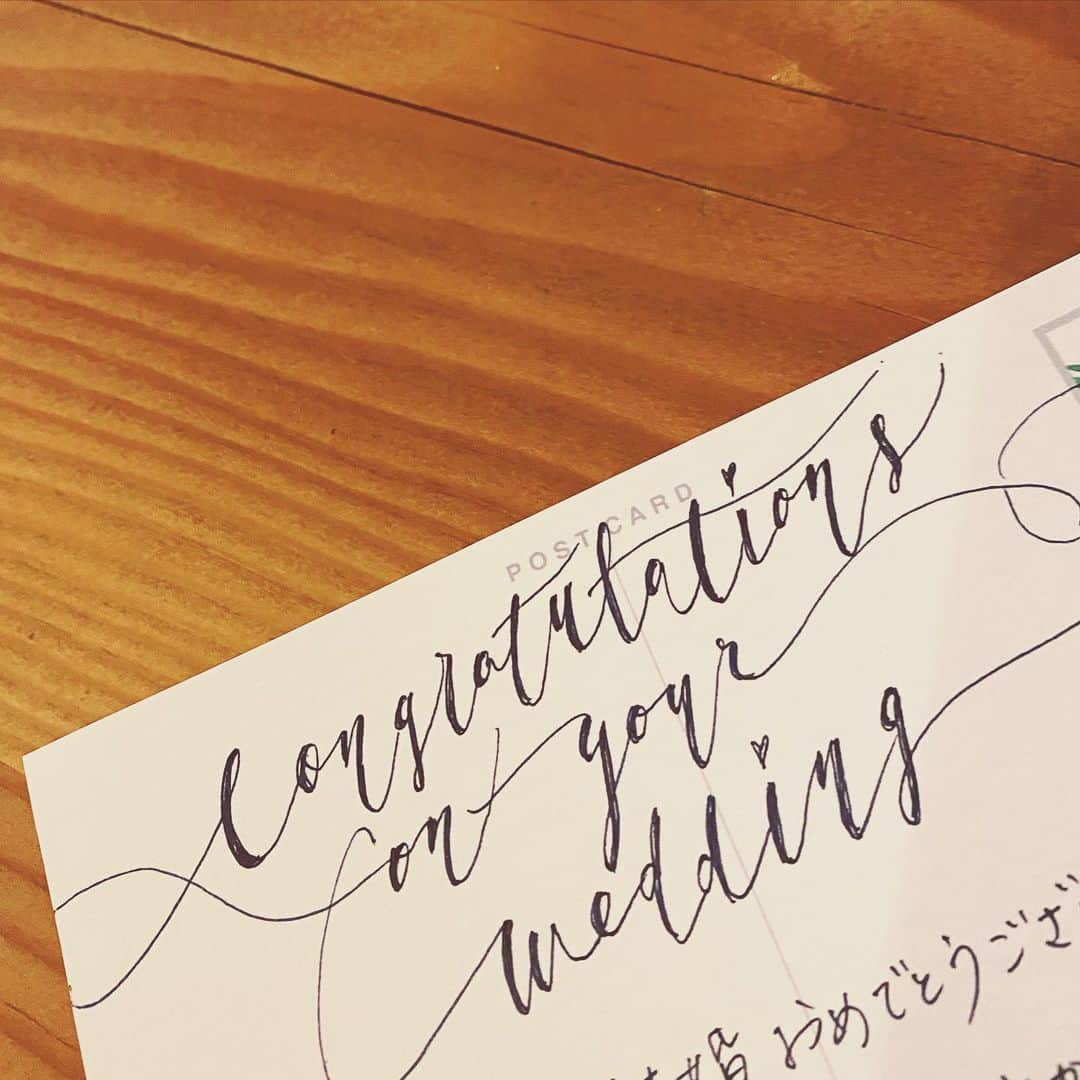 POST CARD
Congratulations
on your
wedding
結婚 おめでとうござ